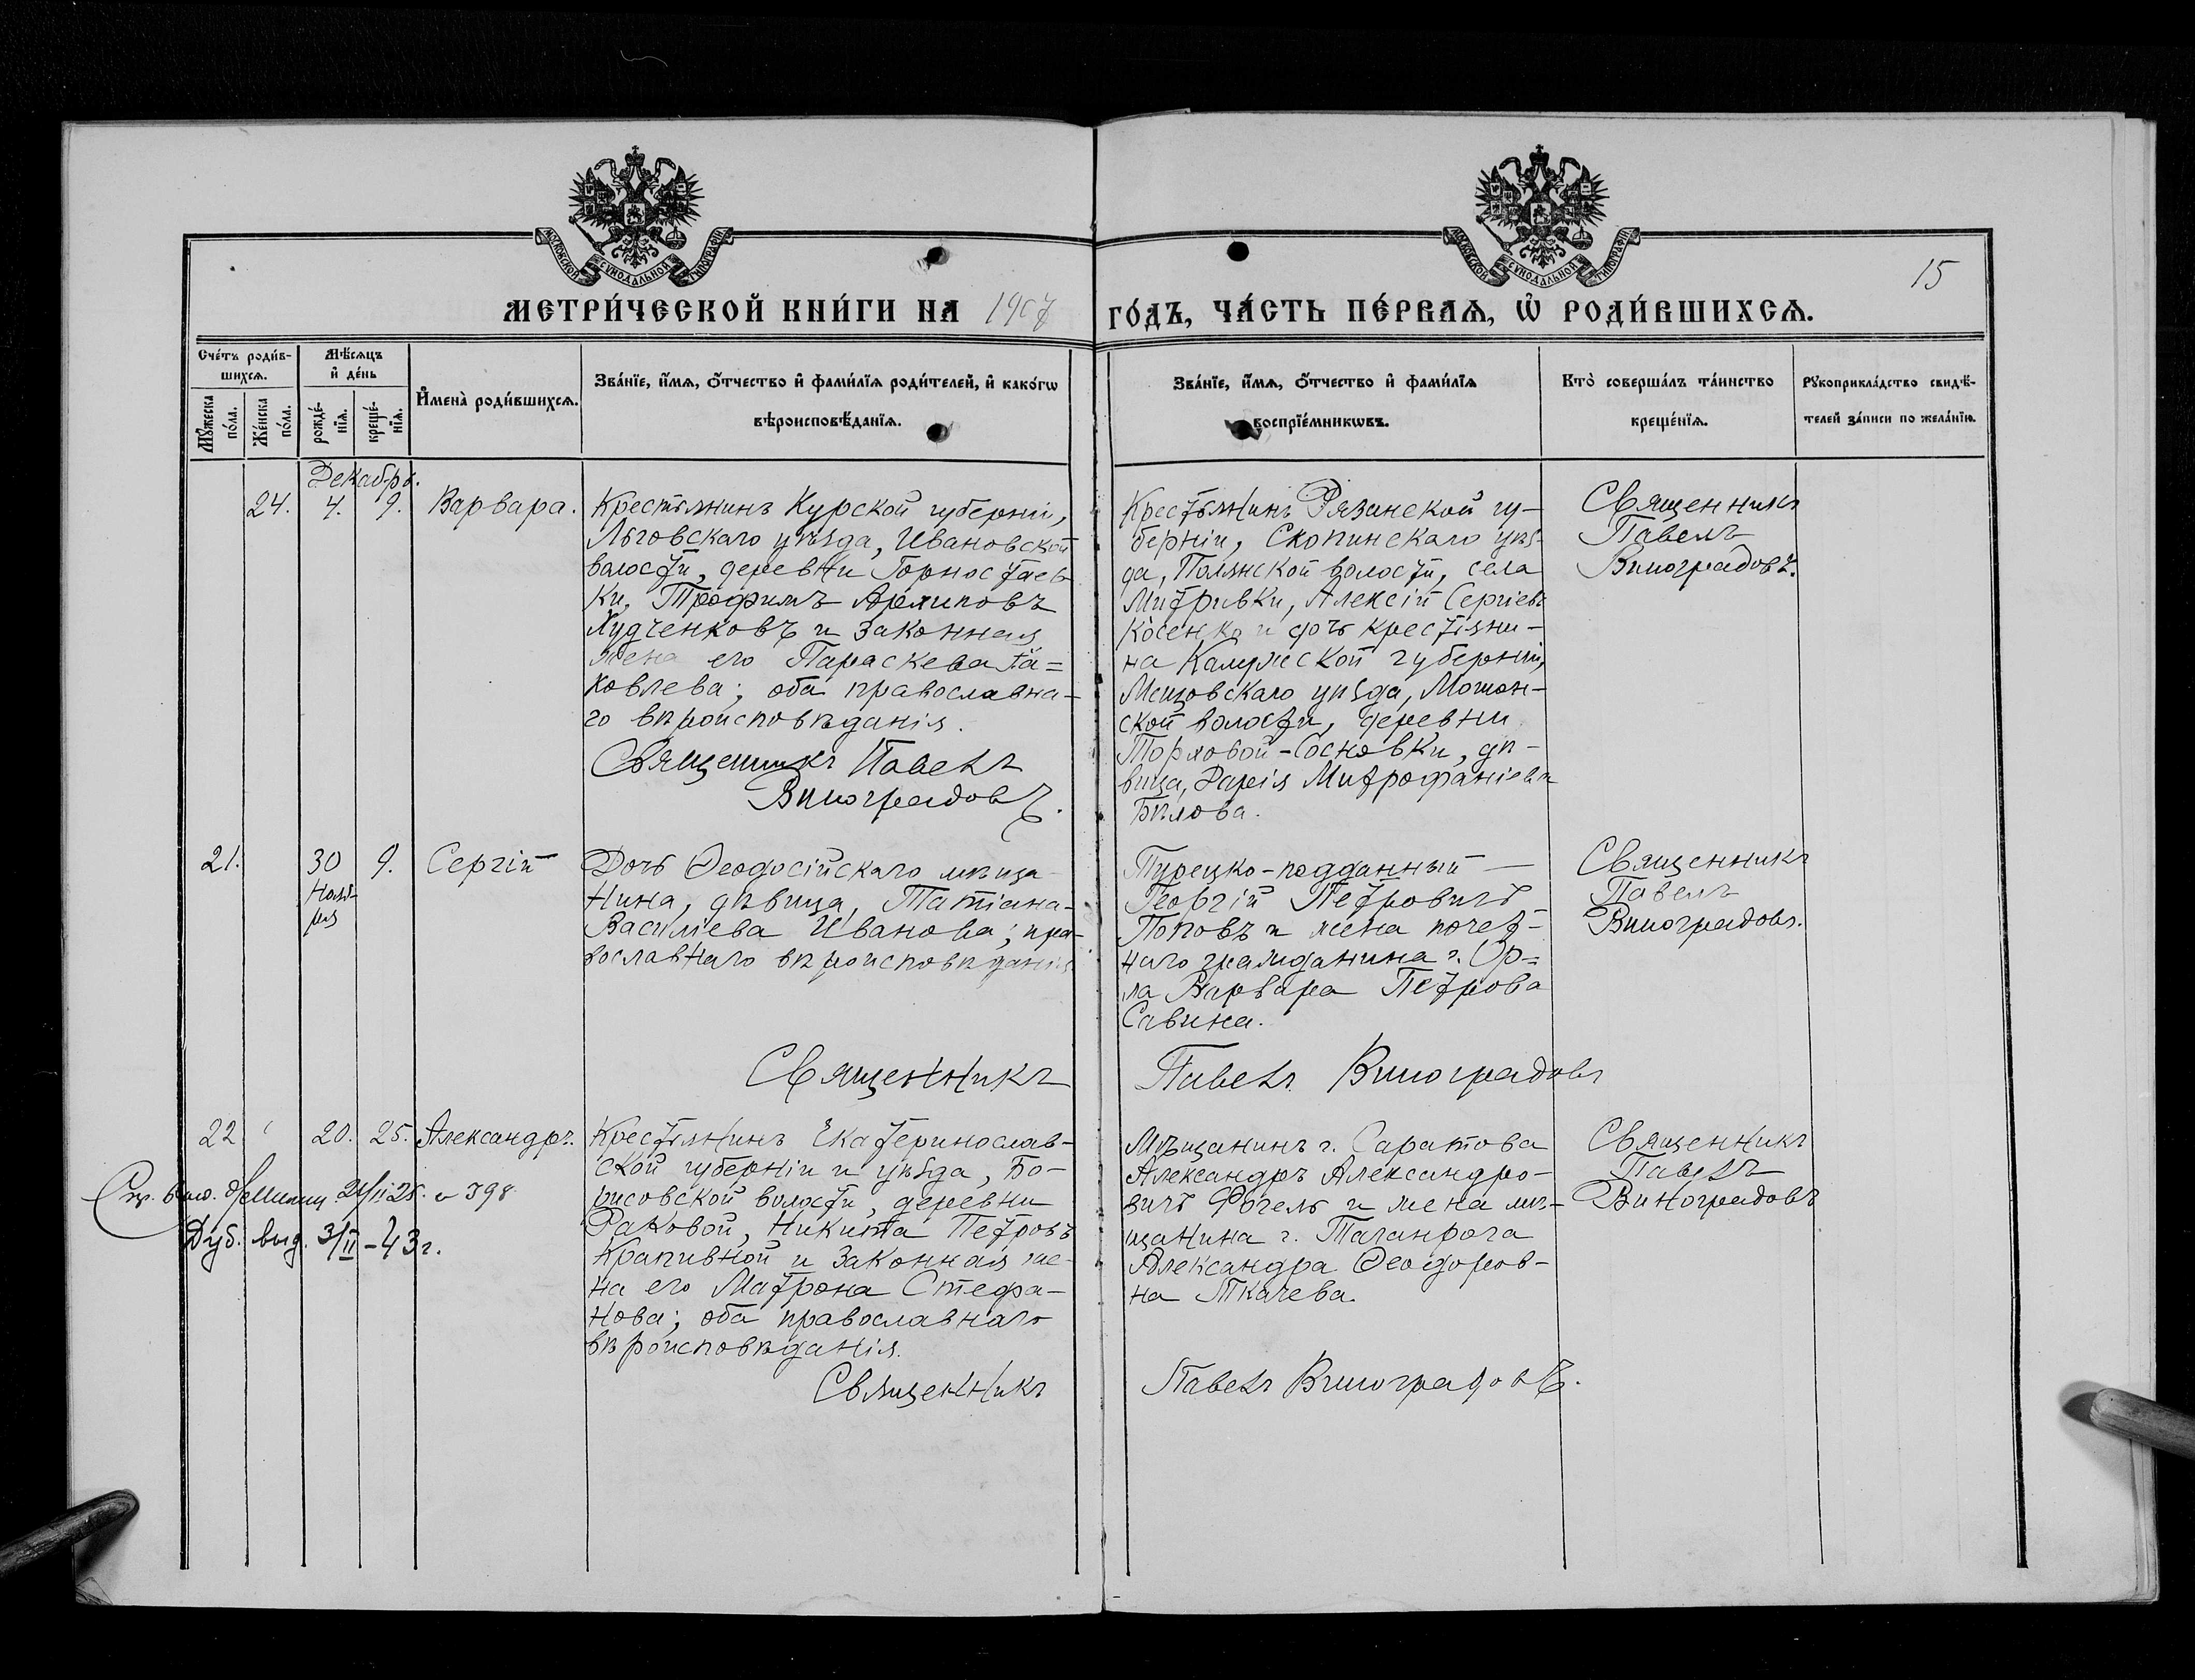 МОСКОВСКОЙ СѴНОДАЛЬНОЙ ТИПОГРАФІИ
МОСКОВСКОЙ СѴНОДАЛЬНОЙ ТИПОГРАФІИ
15
МЕТРИ́ЧЕСКОЙ КНИ́ГИ НА 1907 ГО́ДЪ, ЧА́СТЬ ПЕ́РВАѦ, Ѡ҆ РОДИ́ВШИХСѦ.
Сче́тъ роди́в-
шихсѧ.
Мꙋ́жеска по́ла.
Же́нска по́ла.
Мѣ́сѧцъ
и҆ де́нь
рожде́-
нїѧ.
креще́-
нїѧ.
И҆мена̀ роди́вшихсѧ.
Зва́нїе, и҆́мѧ, ѻ҆́тчество и҆ фами́лїѧ роди́телей, и҆ како́гѡ
вѣроисповѣ́данїѧ.
Зва́нїе, и҆́мѧ, ѻ҆́тчество и҆ фами́лїѧ
воспрїе́мникѡвъ.
Кто̀ соверша́лъ та́инство
креще́нїѧ.
Рꙋкоприкла́дство свидѣ́-
телей за́писи по жела́нїю.
Декабрь.
24. 4. 9. Варвара.
Крестьянинъ Курской губерніи,
Льговскаго уѣзда, Ивановской
волости, деревни Горностаев-
ки, Трофимъ Архиповъ
Худченковъ и законная
жена его Параскева Іа=
ковлева; оба православна-
го вѣроисповѣданія.
Священникъ Павелъ
Виноградовъ.
Крестьянинъ Рязанской гу-
берніи, Скопинскаго уѣз-
да, Полянской волости, села
Митривки, Алексій Сергіевъ
Косенко и дочь крестьяни-
на Калужской губерніи,
Мещовскаго уѣзда,
ской волости, деревни
Торховой-Сосновки, дѣ-
вица, Дарія Митрофаніева
Бѣлова.
Священникъ
Павелъ
Виноградовъ.
21. 30 Нояб-
ря
9. Сергій
Дочь Ѳеодосійскаго мѣща-
нина, дѣвица, Татіана
Василіева Иванова; пра-
вославнаго вѣроисповѣданія
Турецко-подданный —
Георгій Петровичъ
Поповъ и жена почет-
наго гражданина г. Ор=
ла Варвара Петрова
Савина.
Священникъ
Павелъ
Виноградовъ.
Священникъ Павелъ Виноградовъ
22 20. 25. Александръ.
Крестьянинъ Екатеринослав-
ской губерніи и уѣзда, Бо-
рисовской волости, деревни
Раковой, Никита Петровъ
Крапивной и законная же-
на его Матрона Стефа-
нова; оба православнаго
вѣроисповѣданія.
Мѣщанинъ г. Саратова
Александръ Александро-
вичъ Фогель и жена мѣ-
щанина г. Таганрога
Александра Ѳеодоров-
на Ткачева.
Священникъ
Павелъ
Виноградовъ
Священникъ Павелъ Виноградовъ.
398
Дуб. выд. 3/II-43г.